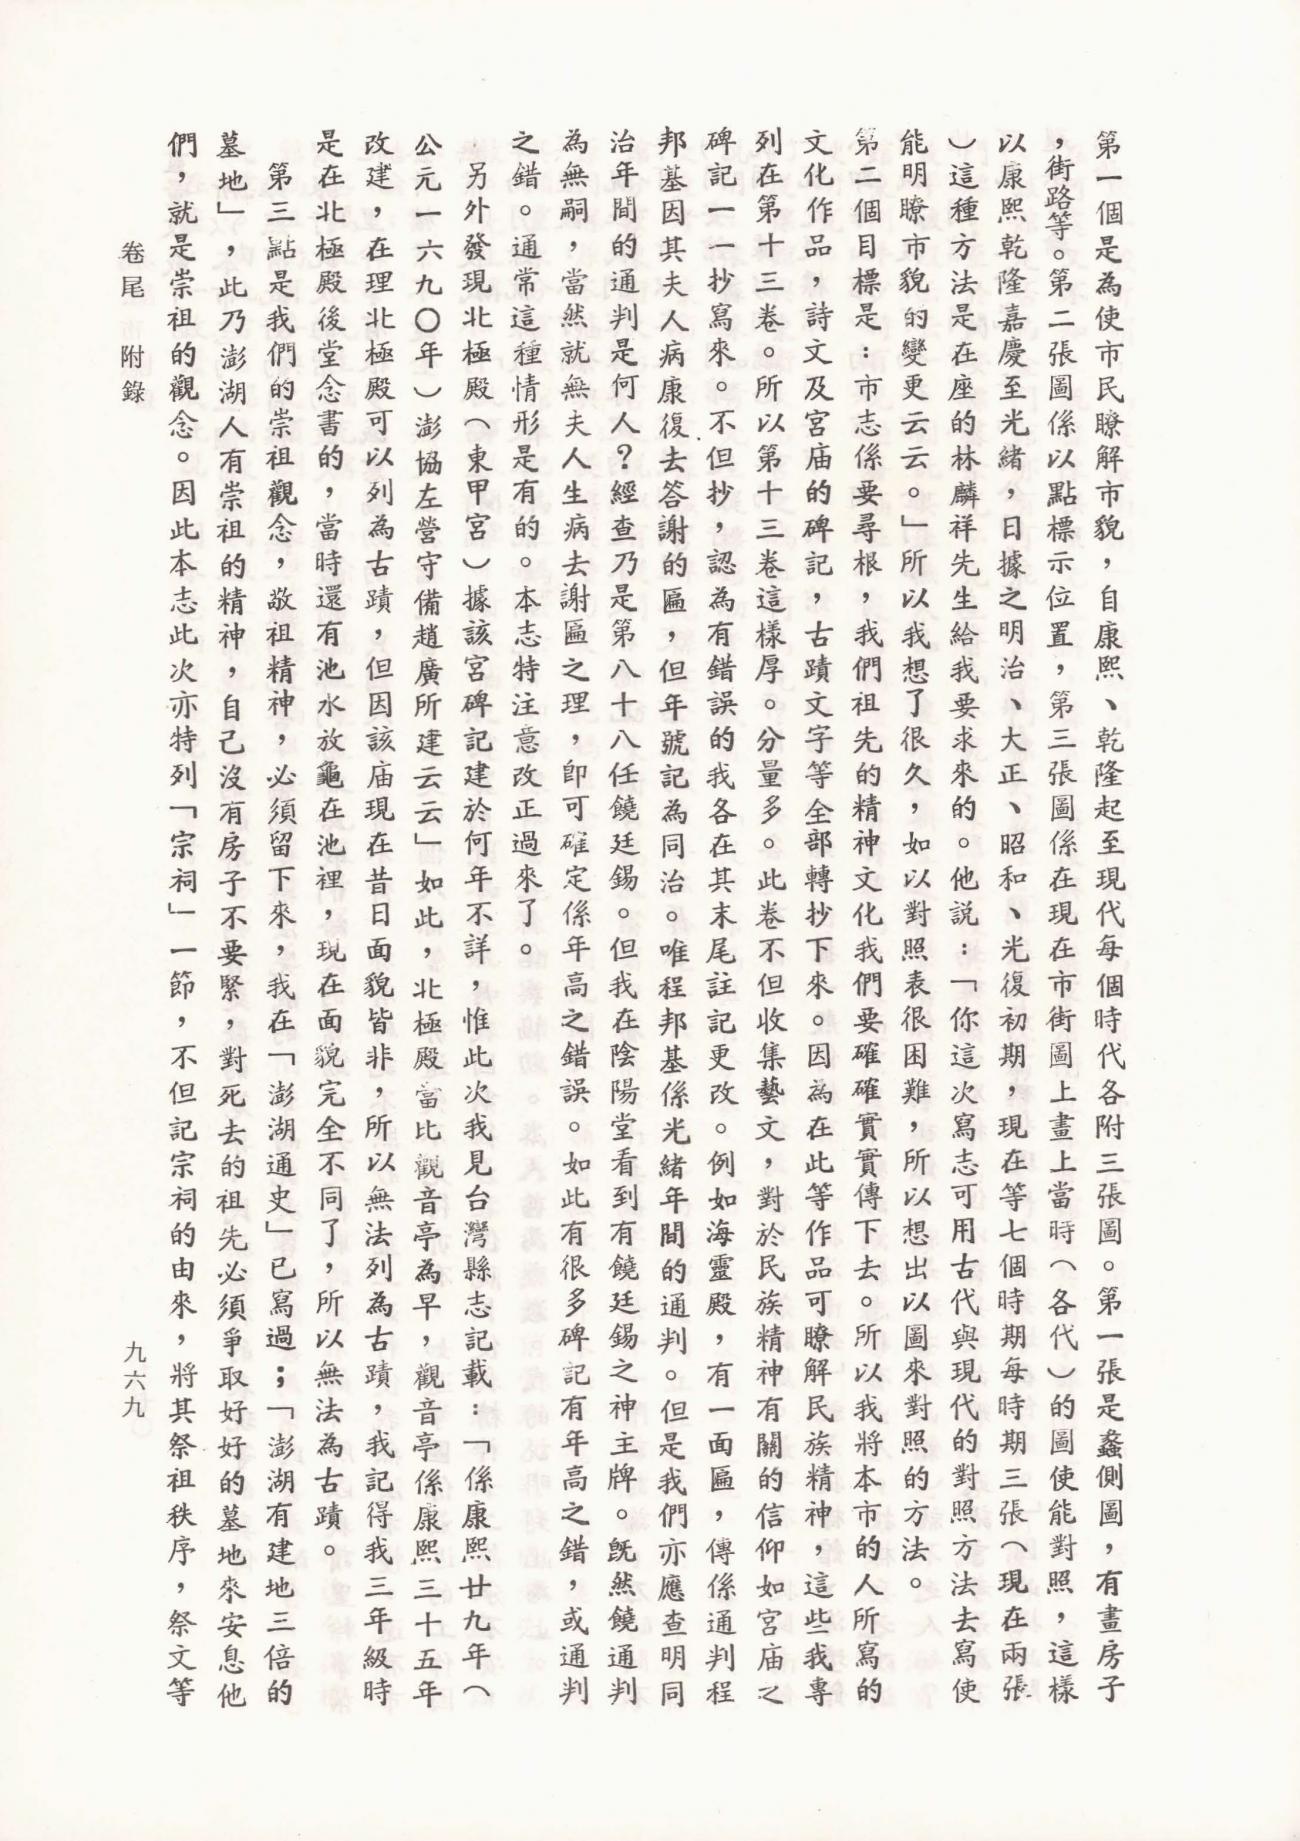 第一個是為使市民瞭解市貌，自康熙、乾隆起至現代每個時代各附三張圖。第一張是鳥側圖，有畫房子
，街路等。第二張圖係以點標示位置，第三張圖係在現在市街圖上畫上當時（各代）的圖使能對照，這樣
以康熙乾隆嘉慶至光緒，日據之明治、大正、昭和、光復初期，現在等七個時期每時期三張（現在兩張
）這種方法是在座的林麟祥先生給我要求來的。他說：「你這次寫志可用古代與現代的對照方法去寫使
能明瞭市貌的變更云云。」所以我想了很久，如以對照表很困難，所以想出以圖來對照的方法。
第二個目標是：市志係要尋根，我們祖先的精神文化我們要確確實實傳下去。所以我將本市的人所寫的
文化作品，詩文及宮庙的碑記，古蹟文字等全部轉抄下來。因為在此等作品可瞭解民族精神，這些我專
列在第十三卷。所以第十三卷這樣厚。分量多。此卷不但收集藝文，對於民族精神有關的信仰如宮庙之
碑記一一抄寫來。不但抄，認為有錯誤的我各在其末尾註記更改。例如海靈殿，有一面匾，傳係通判程
邦基因其夫人病康復去答謝的匾，但年號記為同治。唯程邦基係光緒年間的通判。但是我們亦應查明同
治年間的通判是何人？經查乃是第八十八任饒廷錫。但我在陰陽堂看到有饒廷錫之神主牌。既然饒通判
為無嗣，當然就無夫人生病去謝匾之理，即可確定係年高之錯誤。如此有很多碑記有年高之錯，或通判
之錯。通常這種情形是有的。本志特注意改正過來了。
另外發現北極殿（東甲宮）據該宮碑記建於何年不詳，惟此次我見台灣縣志記載：「係康熙廿九年（
公元一六九〇年）澎協左營守備趙廣所建云云」如此，北極殿當比觀音亭為早，觀音亭係康熙三十五年
改建，在理北極殿可以列為古蹟，但因該庙現在昔日面貌皆非，所以無法列為古蹟，我記得我三年級時
是在北極殿後堂念書的，當時還有池水放龜在池裡，現在面貌完全不同了，所以無法為古蹟。
第三點是我們的崇祖觀念，敬祖精神，必須留下來，我在「澎湖通史」已寫過；「澎湖有建地三倍的
墓地」，此乃澎湖人有崇祖的精神，自己沒有房子不要緊，對死去的祖先必須爭取好好的墓地來安息他
們，就是崇祖的觀念。因此本志此次亦特列「宗祠」一節，不但記宗祠的由來，將其祭祖秩序，祭文等
卷尾　附錄
九六九